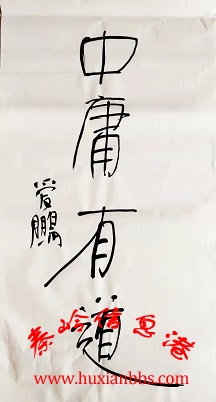 中庸有道
爱鹏
秦岭信息港
www.huxianbbs.com